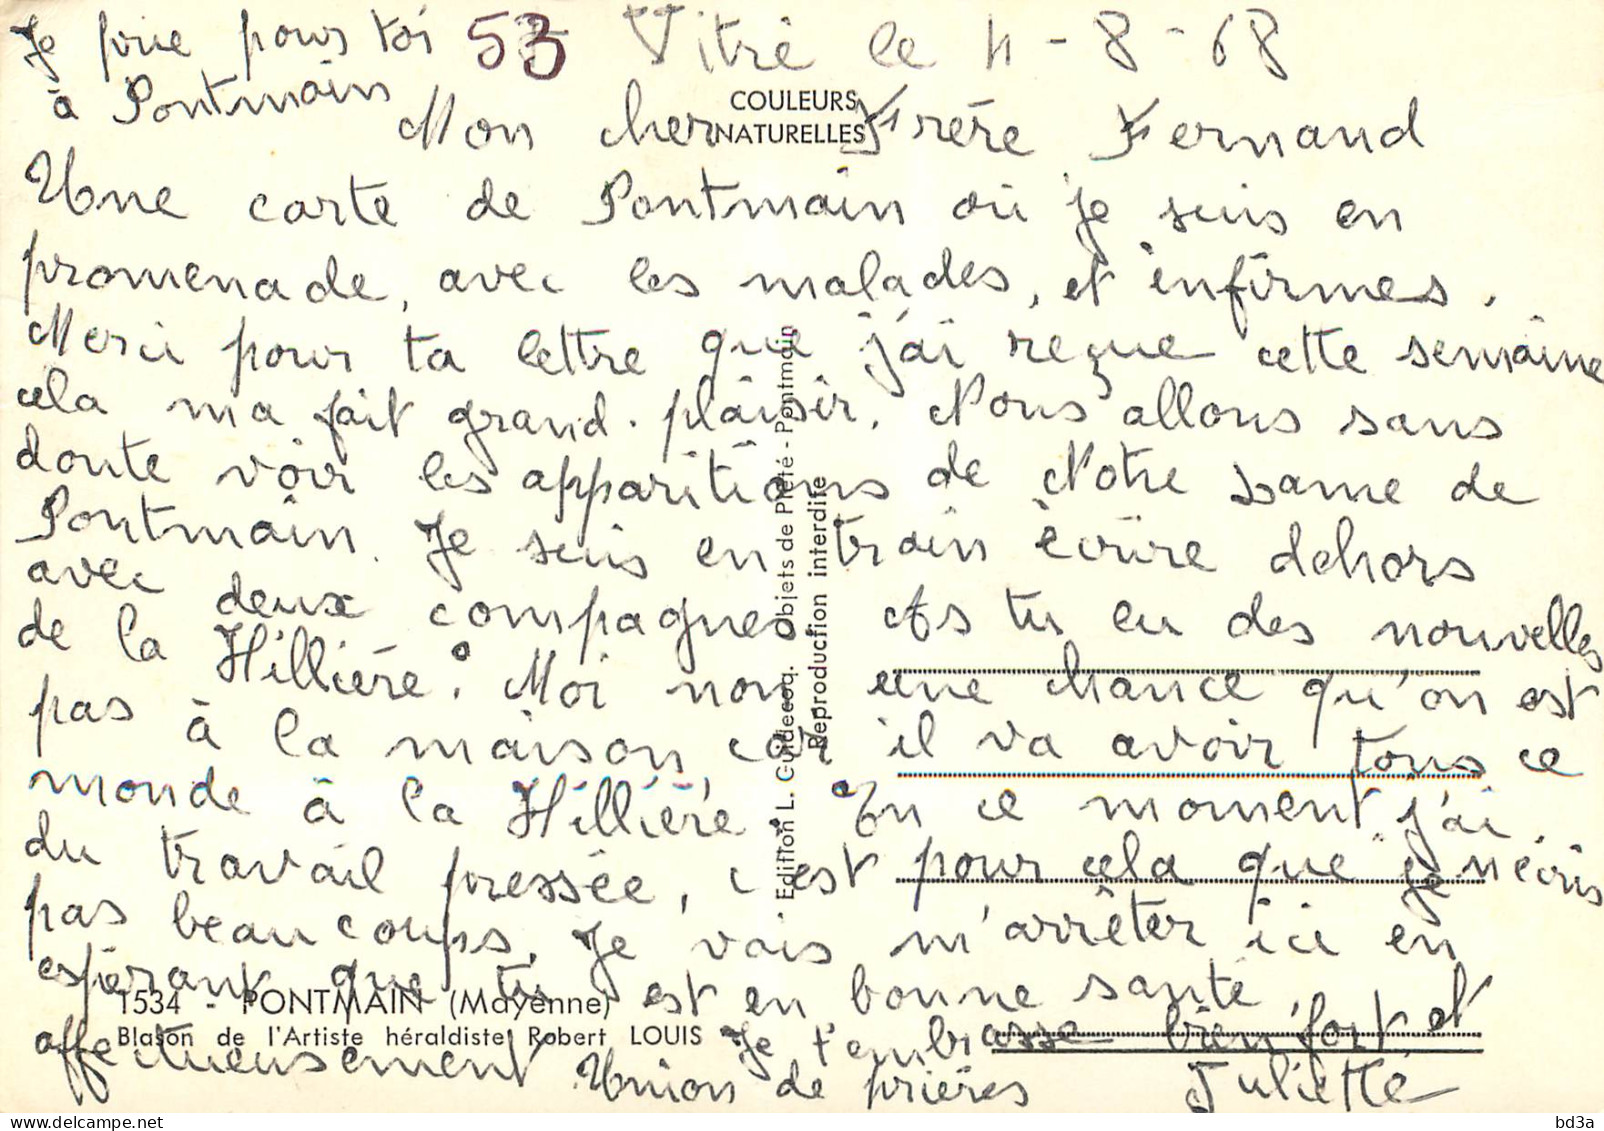 Je prie pour toi 53 Vitré le 11-8-68
à Pontmain
COULEURS
NATURELLES
Mon cher Frère Fernand
Une carte de Pontmain où je suis en
promenade, avec les malades, et infirmes.
Merci pour ta lettre que j'ai reçue cette semaine
cela ma fait grand. plaisir. Nous allons sans
doute voir les apparitions de Notre Dame de
Pontmain. Je suis en train écrire dehors
avec deux compagnes As tu eu des nouvelles
de la Hillière. Moi non une chance qu'on est
pas à la maison car il va avoir tous ce
monde à la Hillière. En ce moment j'ai
du travail pressée, c'est pour cela que je n'écris
pas beaucoups. Je vais m'arrêter ici en
espérant que tu est en bonne santé.
Je t'embrasse bien fort et
affectueusement Union de prières Juliette
1534 - PONTMAIN (Mayenne)
Blason de l'Artiste héraldiste Robert LOUIS
Edition L. Guideccq. Objets de Piété - Pontmain
Reproduction interdite
bd3a